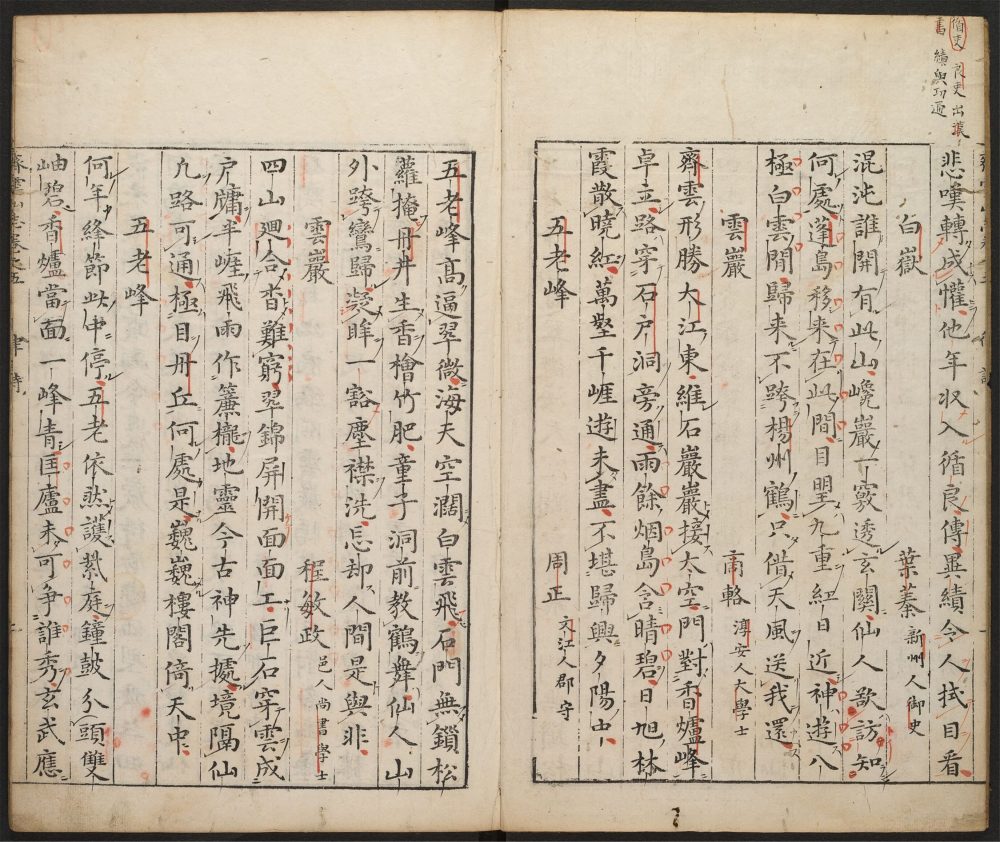 悲嘆轉成懼他年収入循良傳異績令人拭目看
白嶽
葉蓁 新州人御史
混沌誰開有此山巉巖一竅透玄關仙人欲訪知
何處蓬島移来在此間目朢九重紅日近神遊八
極白雲閒歸来不跨楊州鶴只借天風送我還
雲巖
商輅 淳安人大學士
齊雲形勝大江東維石巖巖接太空門對香爐峰
卓立路穿石戸洞旁通雨餘烟島含晴碧日旭林
霞散曉紅萬壑千崕遊未盡不堪歸興夕陽中
五老峰
周正 文江人郡守
五老峰髙逼翠微海天空濶白雲飛石門無鎖松
蘿掩丹井生香檜竹肥童子洞前教鶴舞仙人山
外跨鸞歸凝眸一豁塵襟洗忘却人間是與非
雲巖
程敏政 邑人尚書學士
四山廻合杳難窮翠錦屏開面面工巨石穿雲成
户牗半崕飛雨作簾櫳地靈今古神先㨿境隔仙
凡路可通極目丹丘何處是巍巍樓閣倚天中
五老峰
何年絳節此中停五老依然護紫庭鐘鼓分頭雙
岫碧香爐當面一峰青匡廬未可争誰秀玄武應
齊雲山志卷之五
律詩